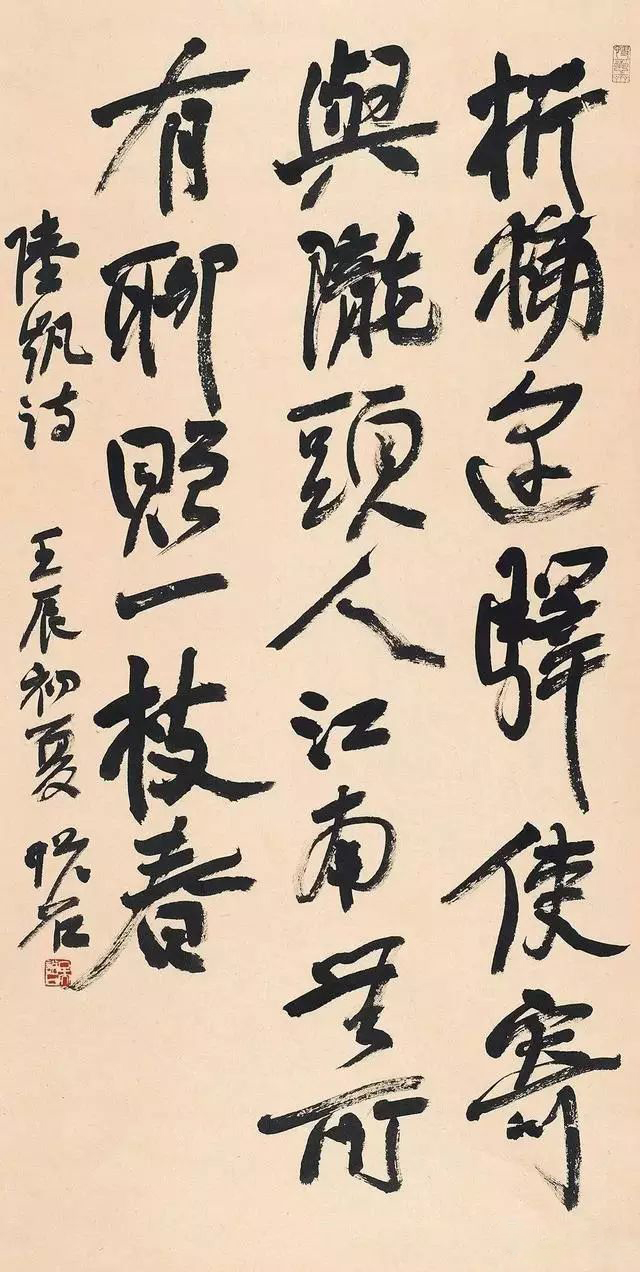 折梅逢驛使寄
與隴頭人江南無所
有聊贈一枝春
陸凱詩 壬辰初夏 悦石